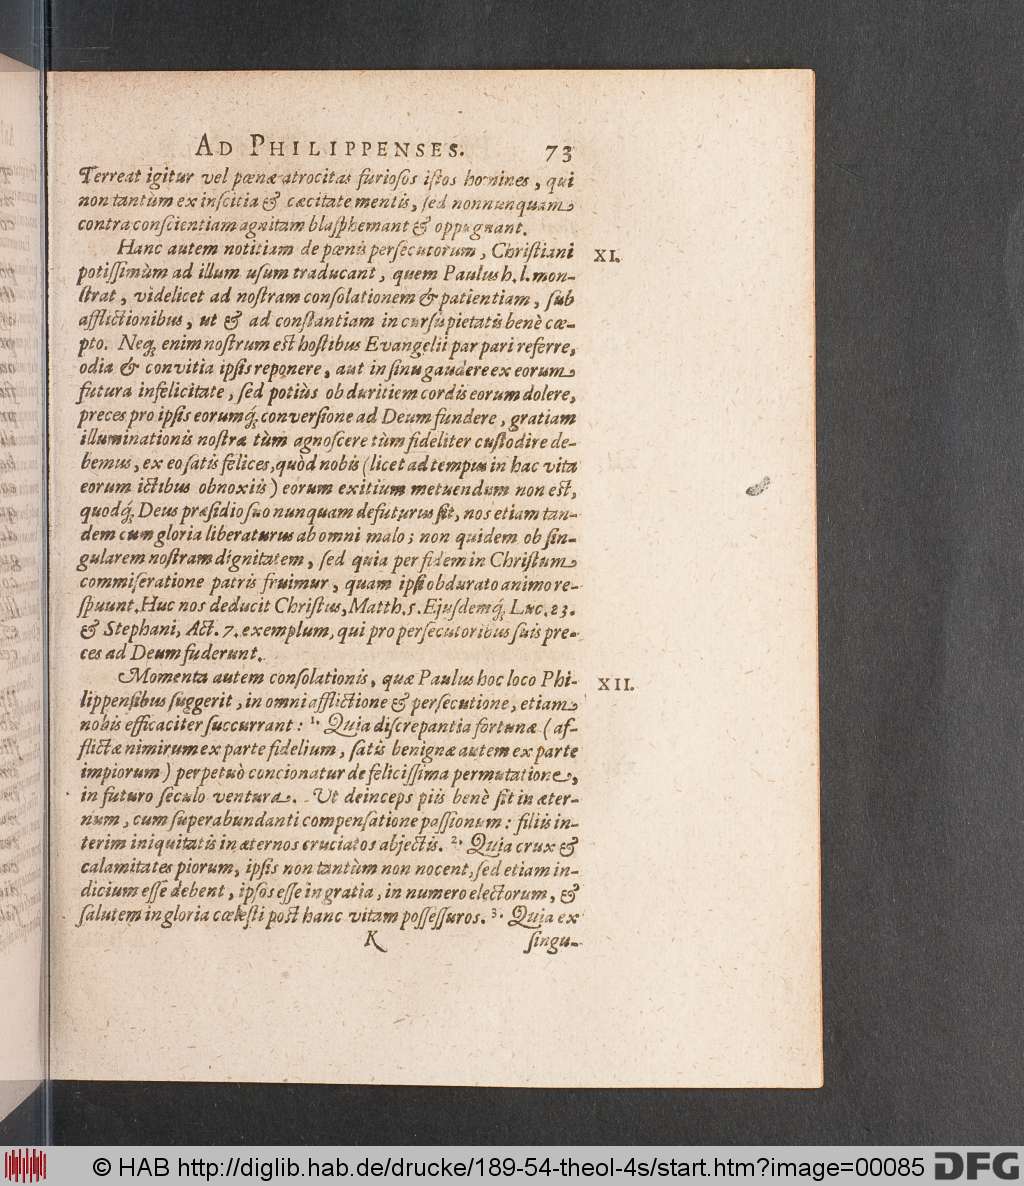 AD PHILIPPENSES. 73
Terreat igitur vel pœnæ atrocitas furiosos istos homines, qui
non tantum ex inscitia & cæcitate mentis, sed nonnunquam
contra conscientiam agnitam blasphemant & oppugnant.
Hanc autem notitiam de pœnis persecutorum, Christiani
XI.
potissimùm ad illum usum traducant, quem Paulus h. l. mon-
strat, videlicet ad nostram consolationem & patientiam, sub
afflictionibus, ut & ad constantiam in cursu pietatis benè cœ-
pto. Neq; enim nostrum est hostibus Evangelii par pari referre,
odia & convitia ipsis reponere, aut in sinu gaudere ex eorum
futura infelicitate, sed potiùs ob duritiem cordis eorum dolere,
preces pro ipsis eorumq́; conversione ad Deum fundere, gratiam
illuminationis nostræ tùm agnoscere tùm fideliter custodire de-
bemus, ex eo satis felices, quòd nobis (licet ad tempus in hac vita
eorum ictibus obnoxiis) eorum exitium metuendum non est,
quodq́; Deus præsidio suo nunquam defuturus sit, nos etiam tan-
dem cum gloria liberaturus ab omni malo; non quidem ob sin-
gularem nostram dignitatem, sed quia per fidem in Christum
commiseratione patris fruimur, quam ipsi obdurato animo re-
spuunt. Huc nos deducit Christus, Matth. 5. Ejusdemq́; Luc. 23.
& Stephani, Act. 7. exemplum, qui pro persecutoribus suis pre-
ces ad Deum fuderunt.
Momenta autem consolationis, quæ Paulus hoc loco Phi-
XII.
lippensibus suggerit, in omni afflictione & persecutione, etiam
nobis efficaciter succurrant: 1. Quia discrepantia fortunæ (af-
flictæ nimirum ex parte fidelium, satis benignæ autem ex parte
impiorum) perpetuò concionatur de felicissima permutatione,
in futuro seculo ventura. Ut deinceps piis benè sit in æter-
num, cum superabundanti compensatione passionum: filiis in-
terim iniquitatis in æternos cruciatos abjectis. 2. Quia crux &
calamitates piorum, ipsis non tantùm non nocent, sed etiam in-
dicium esse debent, ipsos esse in gratia, in numero electorum, &
salutem in gloria cœlesti post hanc vitam possessuros. 3. Quia ex
K singu-
© HAB http://diglib.hab.de/drucke/189-54-theol-4s/start.htm?image=00085 DFG